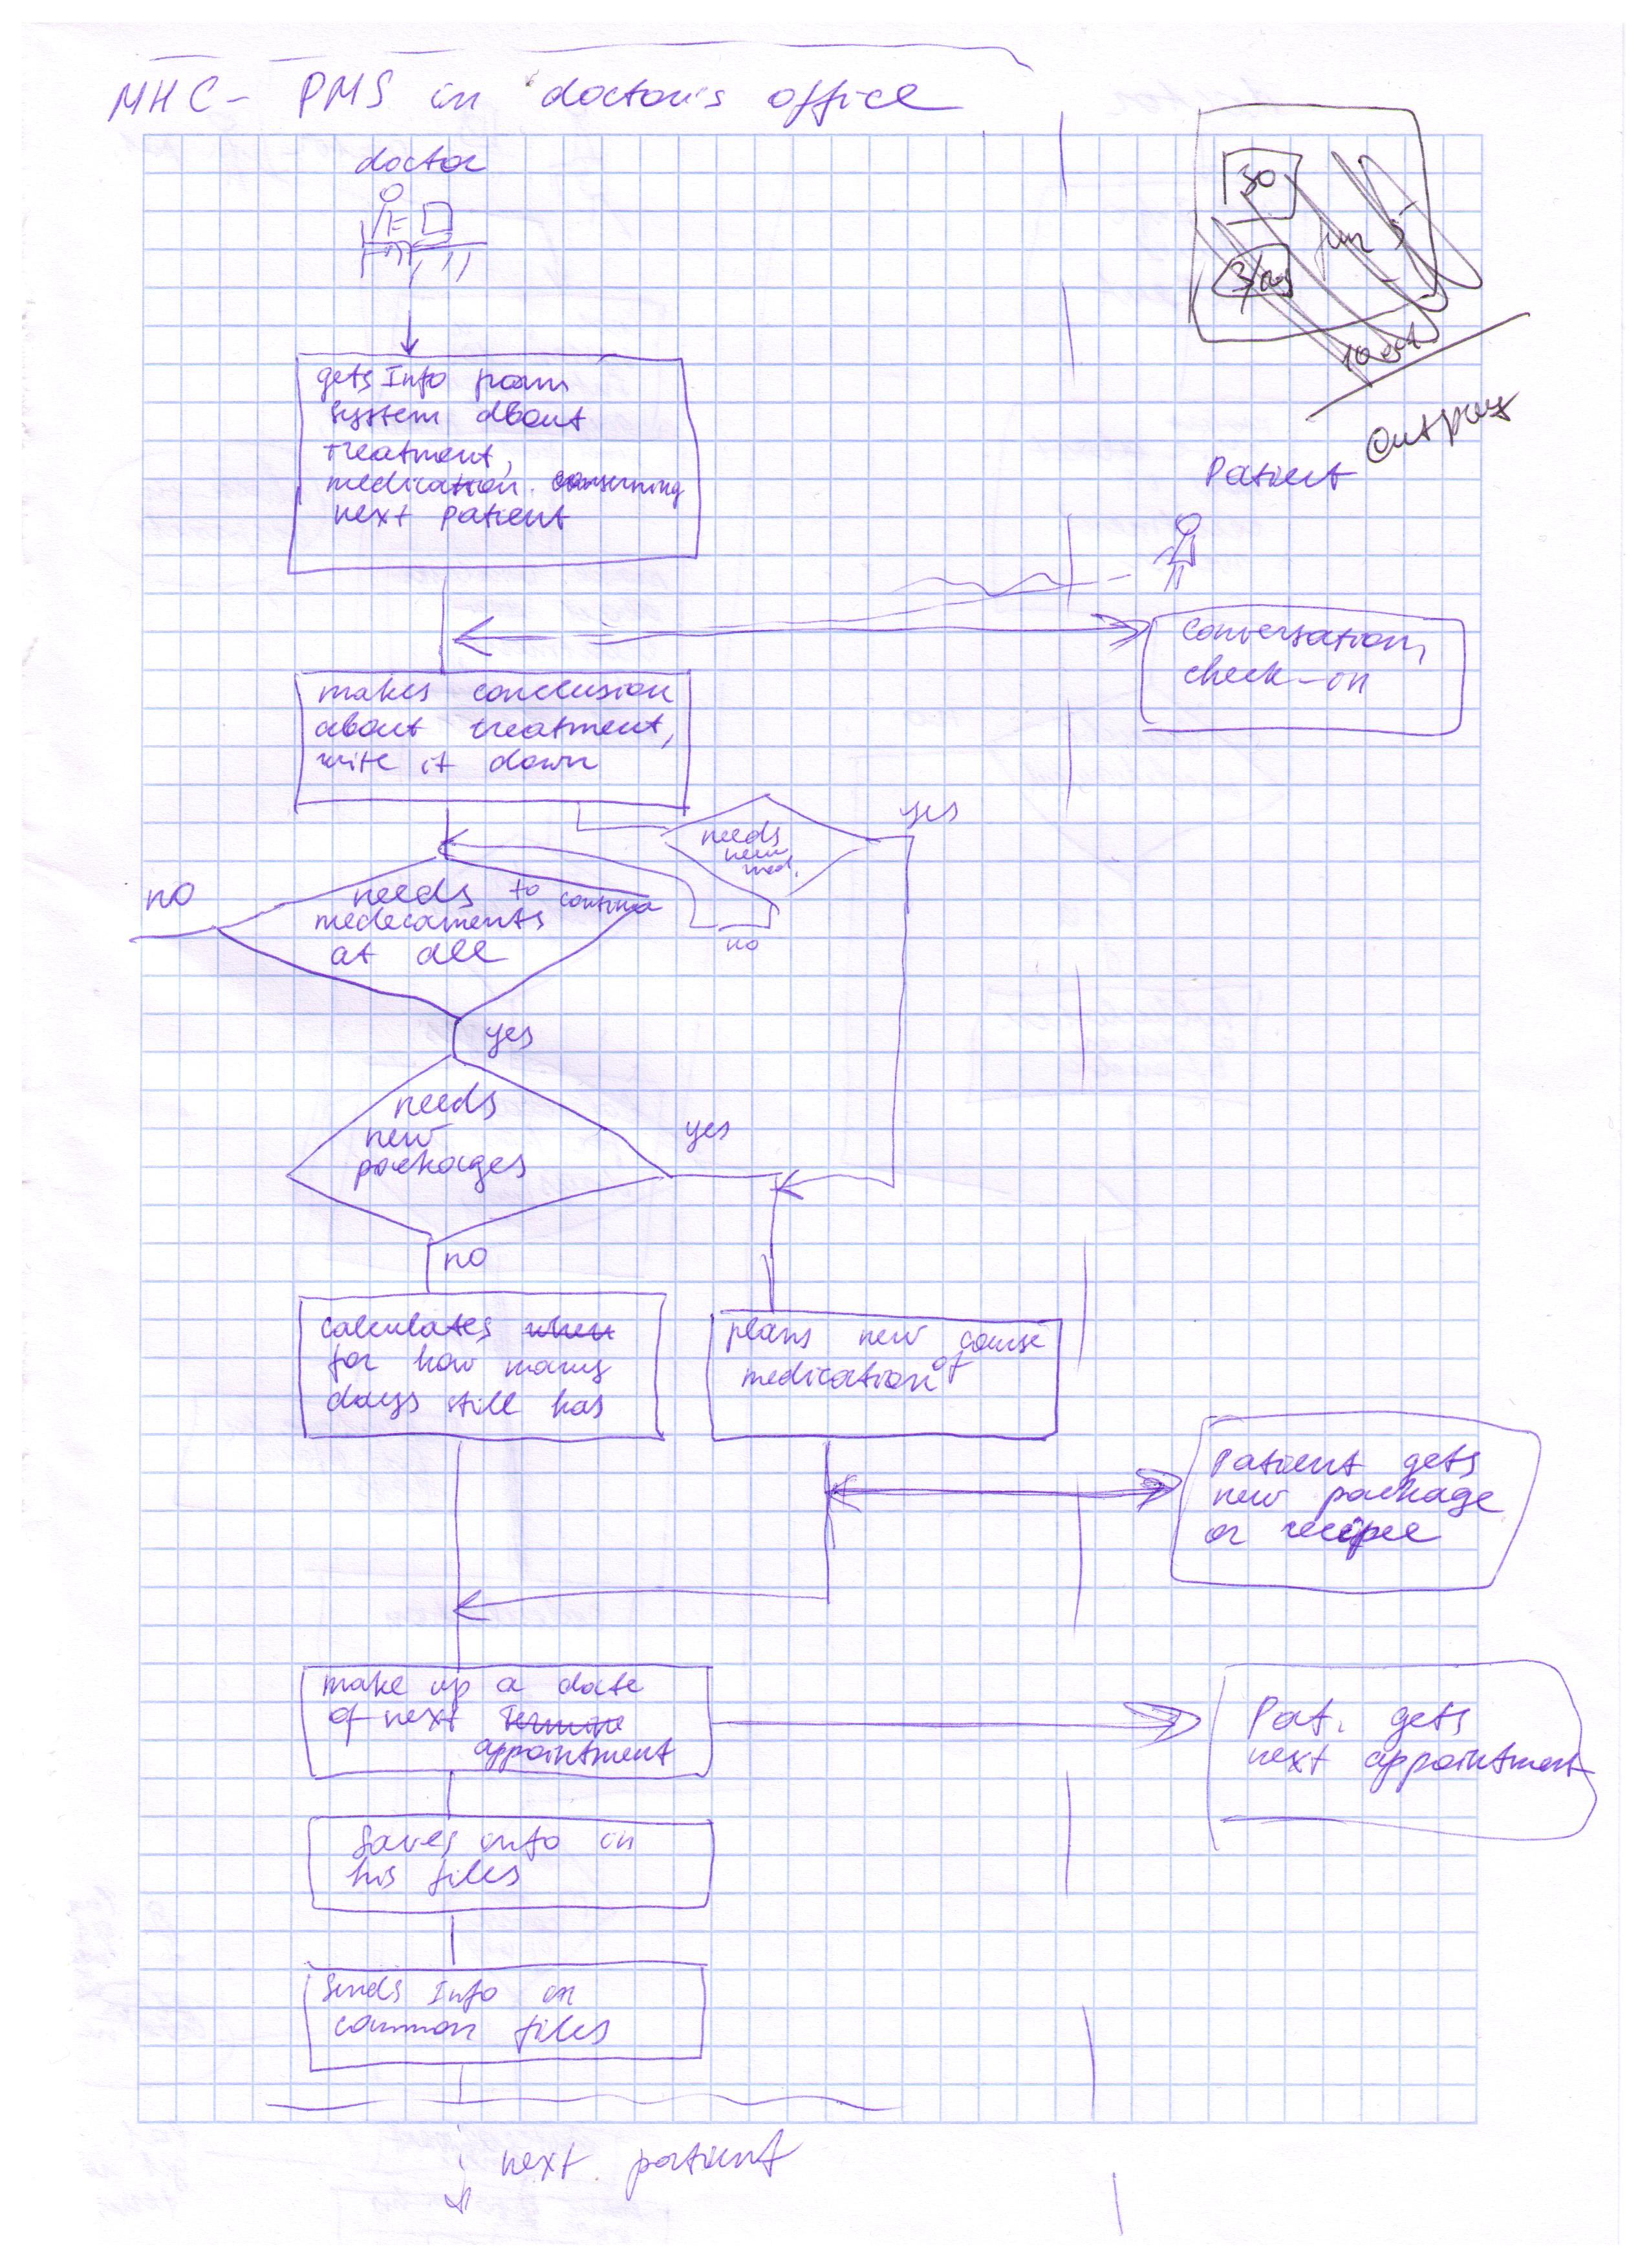 MHC - PMS in doctor's office
doctor
30
10
gets Info from
system about
treatment,
medication. conserning
next patient
Patient
conversation,
check-on
makes conclusion
about treatment,
write it down
yes
needs
new
med.
no
no
needs to continue
medecaments
at all
yes
needs
new
packages
yes
no
calculates when
for how many
days still has
plans new course
of
medication
Patient gets
new package
or recipee
make up a date
of next Termine
appointment
Pat. gets
next appointment
saves info in
his files
sends Info on
common files
next patient